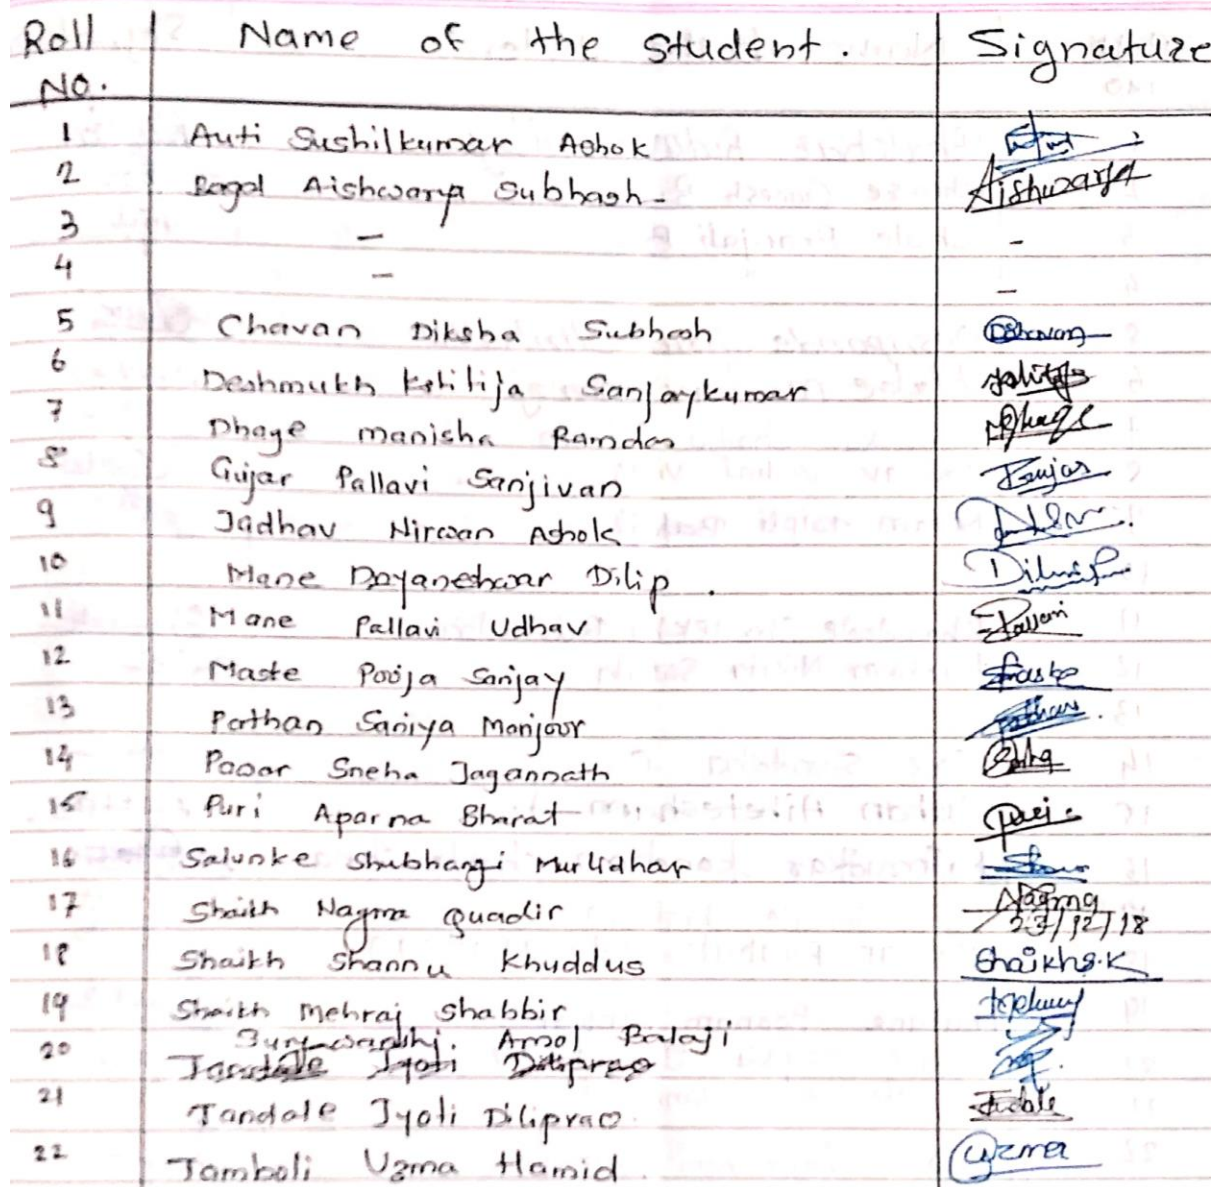 Roll No. Name of the Student. Signature
1 Auti Sushilkumar Ashok
2 Bagal Aishwarya Subhash - Aishwarya
3 - -
4 - -
5 Chavan Diksha Subhash
6 Deshmukh Kshitija Sanjaykumar
7 Dhage Manisha Ramdas
8 Gujar Pallavi Sanjivan Gujar
9 Jadhav Nirwan Ashok
10 Mane Dnyaneshwar Dilip .
11 Mane Pallavi Udhav Pallavi
12 Maste Pooja Sanjay
13 Pathan Saniya Manjoor
14 Pawar Sneha Jagannath
15 Puri Aparna Bharat Puri
16 Salunke Shubhangi Murlidhar
17 Shaikh Nagma Quadir Nagma
23/12/18
18 Shaikh Shannu Khuddus Shaikh S.K
19 Shaikh Mehraj Shabbir
Amol Balaji
20 Tandale Jyoti Diliprao
21 Tandale Jyoti Diliprao
22 Tamboli Uzma Hamid Uzma